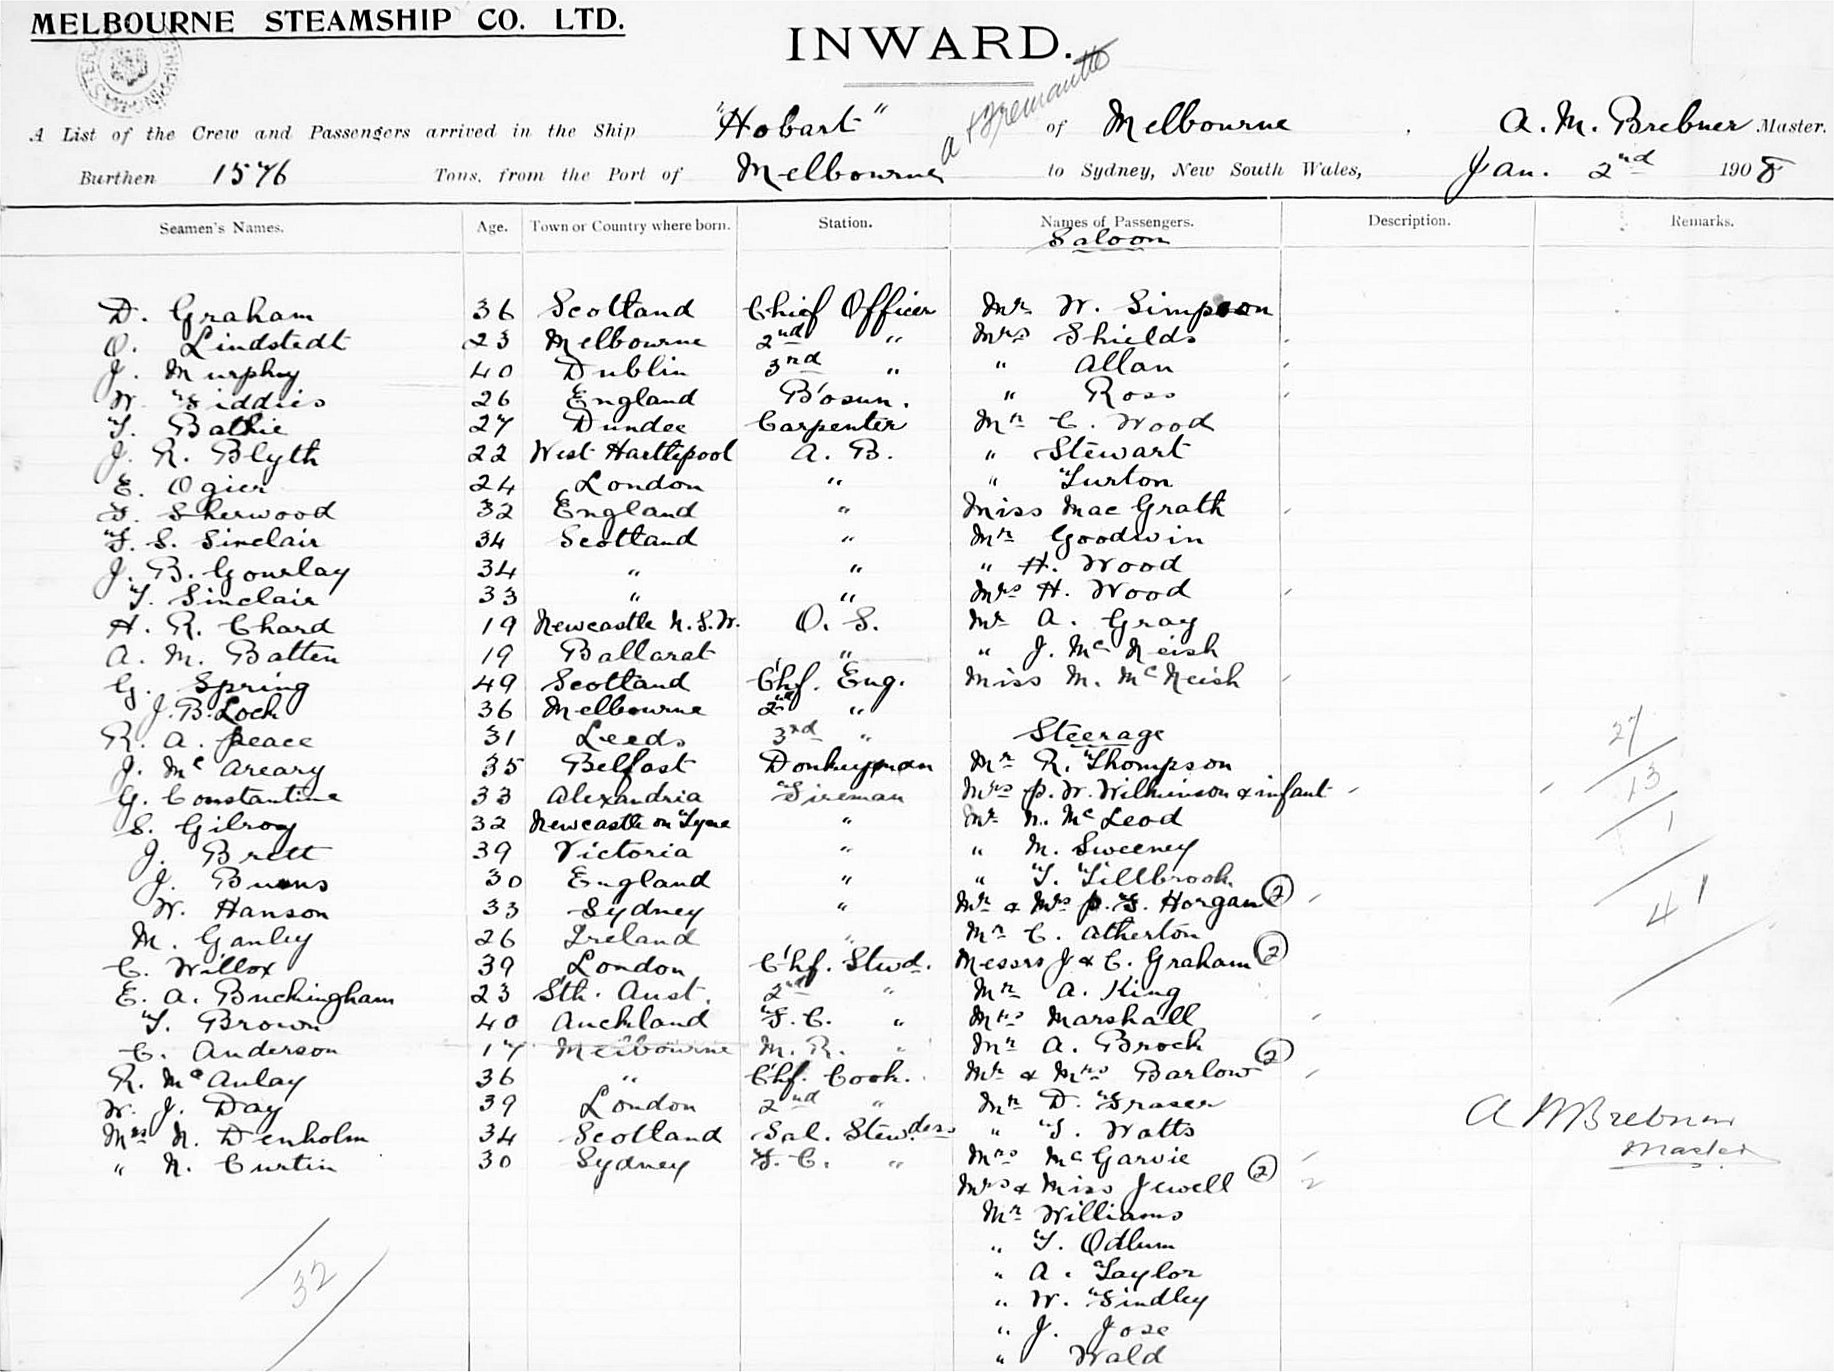 MELBOURNE STEAMSHIP CO. LTD.
INWARD.
at Fremantle
A List of the Crew and Passengers arrived in the Ship "Hobart" of Melbourne , A. M. Brebner Master.
Burthen 1576 Tons, from the Port of Melbourne to Sydney, New South Wales, Jan. 2nd 1908
Seamen's Names. Age. Town or Country where born. Station. Names of Passengers. Description. Remarks.
Saloon
D. Graham 36 Scotland Chief Officer Mr W. Simpson
O. Lindstedt 23 Melbourne 2nd " Mrs Shields
J. Murphy 40 Dublin 3rd " " Allan
W. Fiddies 26 England B'osun. " Ross
T. Bathie 27 Dundee Carpenter Mr C. Wood
J. R. Blyth 22 West Hartlepool A. B. " Stewart
E. Ogier 24 London " " Turton
F. Sherwood 32 England " Miss Mac Grath
T. S. Sinclair 34 Scotland " Mr Goodwin
J. B. Gourlay 34 " " " H. Wood
T. Sinclair 33 " " Mrs H. Wood
H. R. Chard 19 Newcastle N.S.W. O. S. Mr A. Gray
A. M. Batten 19 Ballarat " " J. Mc Neish
G. Spring 49 Scotland Chf. Eng. Miss M. McNeish
J. B. Lock 36 Melbourne 2nd "
R. A. Peace 31 Leeds 3rd " Steerage
J. Mc Areary 35 Belfast Donkeyman Mr R. Thompson
G. Constantine 33 Alexandria Fireman Mrs P. W. Wilkinson & infant
S. Gilroy 32 Newcastle on Tyne " Mr N. McLeod
J. Brett 39 Victoria " " M. Sweeney
J. Burns 30 England " " T. Tillbrook
W. Hanson 33 Sydney " Mr & Mrs P. F. Horgan (2)
M. Ganley 26 Ireland " Mr C. Atherton
C. Willox 39 London Chf. Stwd. Messrs J & C. Graham (2)
E. A. Buckingham 23 Sth. Aust. 2nd " Mr A. King
T. Brown 40 Auckland F. C. " Mrs Marshall
C. Anderson 17 Melbourne M. R. " Mr A. Brock
R. McAulay 36 " Chf. Cook. Mr & Mrs Barlow (2)
W. J. Day 39 London 2nd " Mr D. Fraser
Mrs N. Denholm 34 Scotland Sal. Stewdess " T. Watts
" N. Curtin 30 Sydney F. C. " Mrs McGarvie
Mrs & Miss Jewell (2)
Mr Williams
" T. Odlum
" A. Taylor
" W. Findley
" J. Jose
" Wald
27
13
1
41
A M Brebner
Master
32